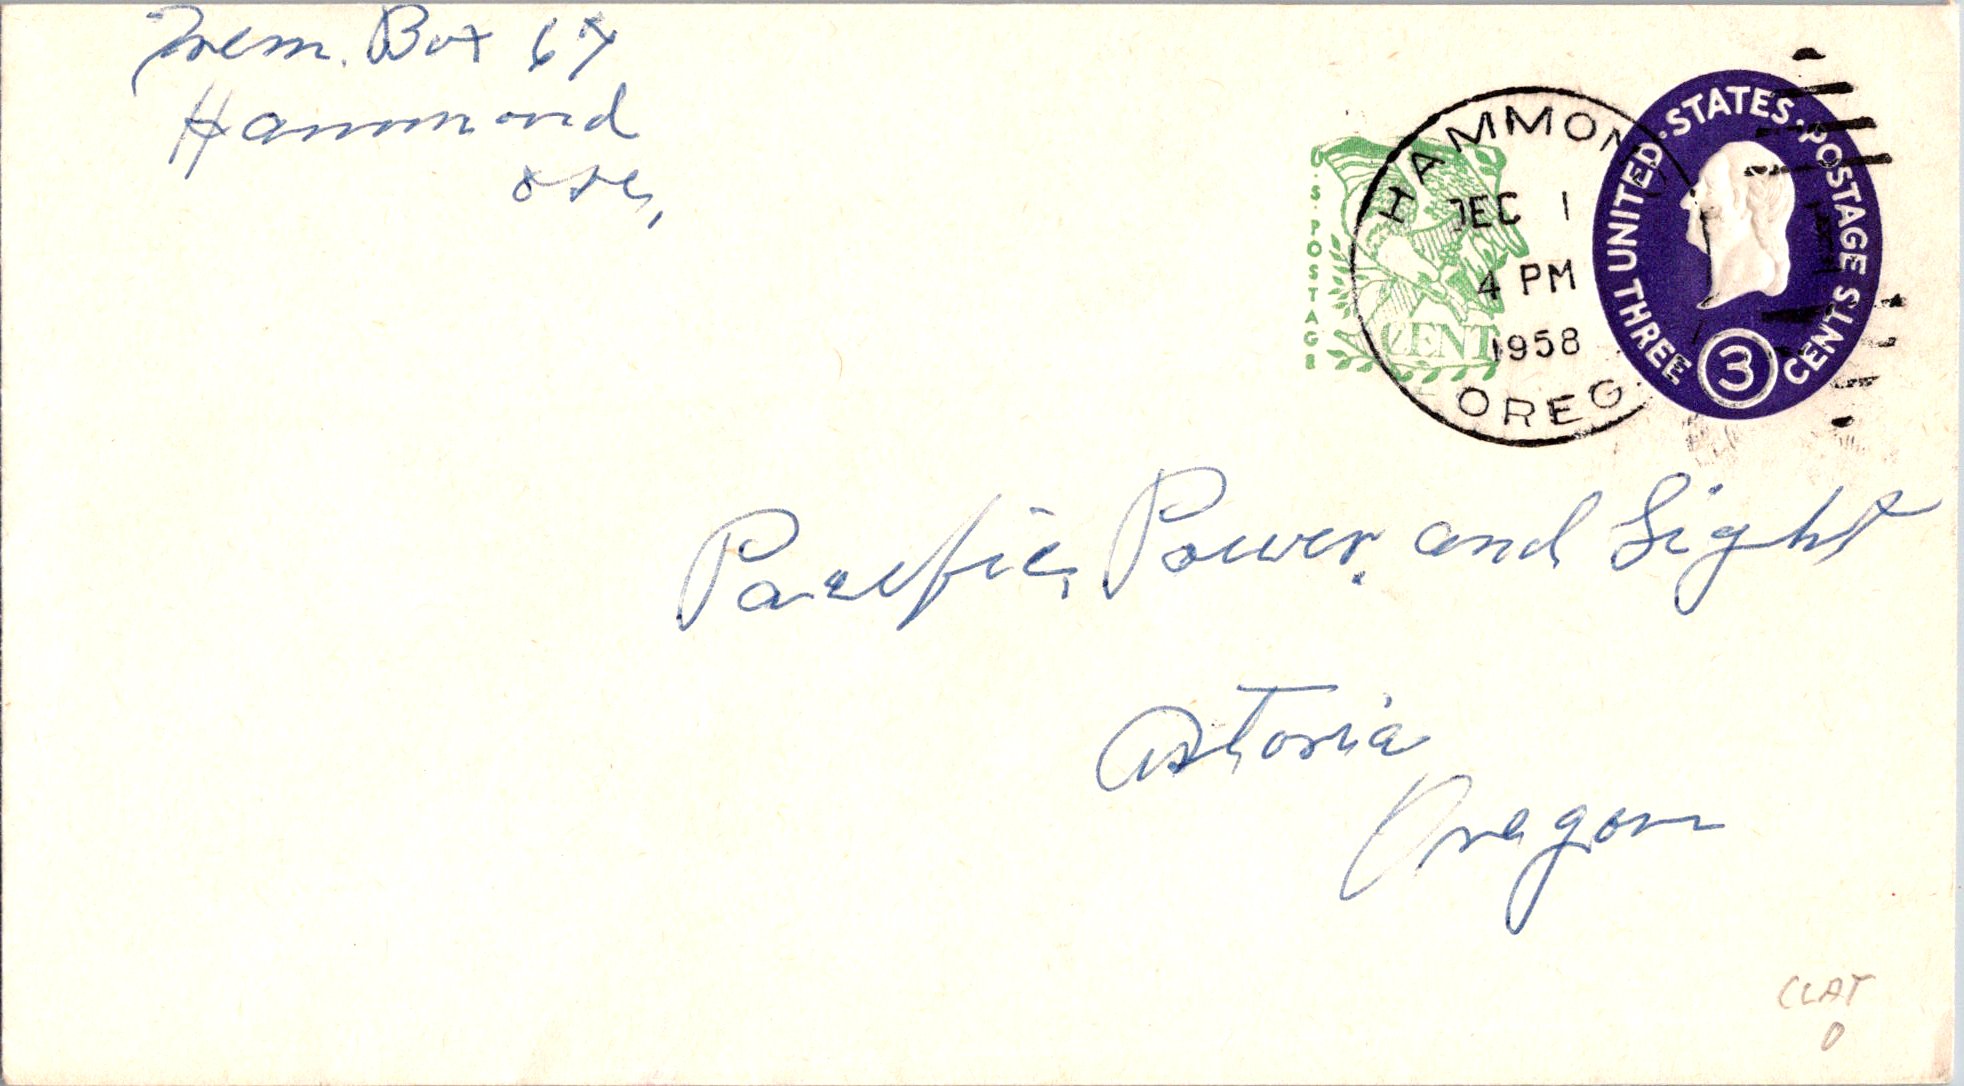 Box 67
Hammond
Ore,
U.S. POSTAGE
CENT
HAMMOND
DEC 1
4 PM
1958
OREG.
UNITED · STATES · POSTAGE
THREE 3 CENTS
Pacific Power and Light
Astoria
Oregon
CLAT
0